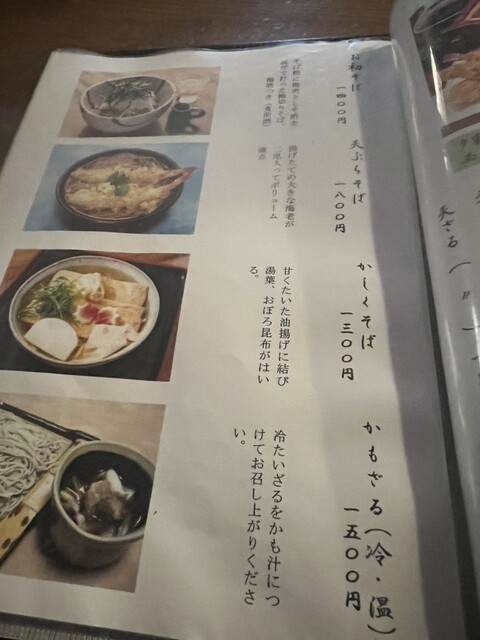 お初そば
一四〇〇円
天ぷらそば
一八〇〇円
揚げたての大きな海老が
二尾入ってボリューム
満点
かしくそば
一三〇〇円
甘くたいた油揚げに結び
湯葉、おぼろ昆布がはい
る。
かもざる(冷・温)
一五〇〇円
冷たいざるをかも汁につ
けてお召し上がりくださ
い。
天ざる(